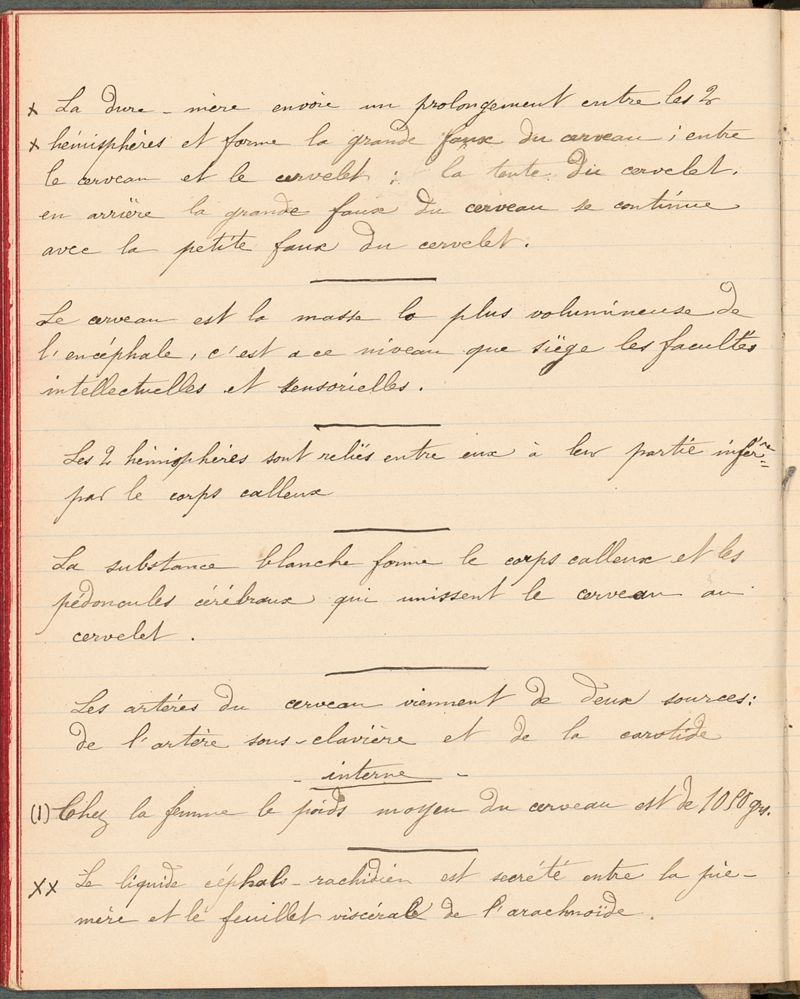 x La dure-mère envoie un prolongement entre les 2
x hémisphères et forme la grande faux du cerveau ; entre
le cerveau et le cervelet ; la tente du cervelet.
en arrière la grande faux du cerveau se continue
avec la petite faux du cervelet.
Le cerveau est la masse la plus volumineuse de
l'encéphale, c'est a ce niveau que siège les facultés
intellectuelles et sensorielles.
Les 2 hémisphères sont reliés entre eux à leur partie infér^re
par le corps calleux
La substance blanche forme le corps calleux et les
pédoncules cérébraux qui unissent le cerveau au
cervelet.
Les artères du cerveau viennent de deux sources :
de l'artère sous-clavière et de la carotide
- interne -
(1) Chez la femme le poids moyen du cerveau est de 1050 grs.
xx Le liquide céphalo-rachidien est secrété entre la pie-
mère et le feuillet viscérale de l'arachnoïde.